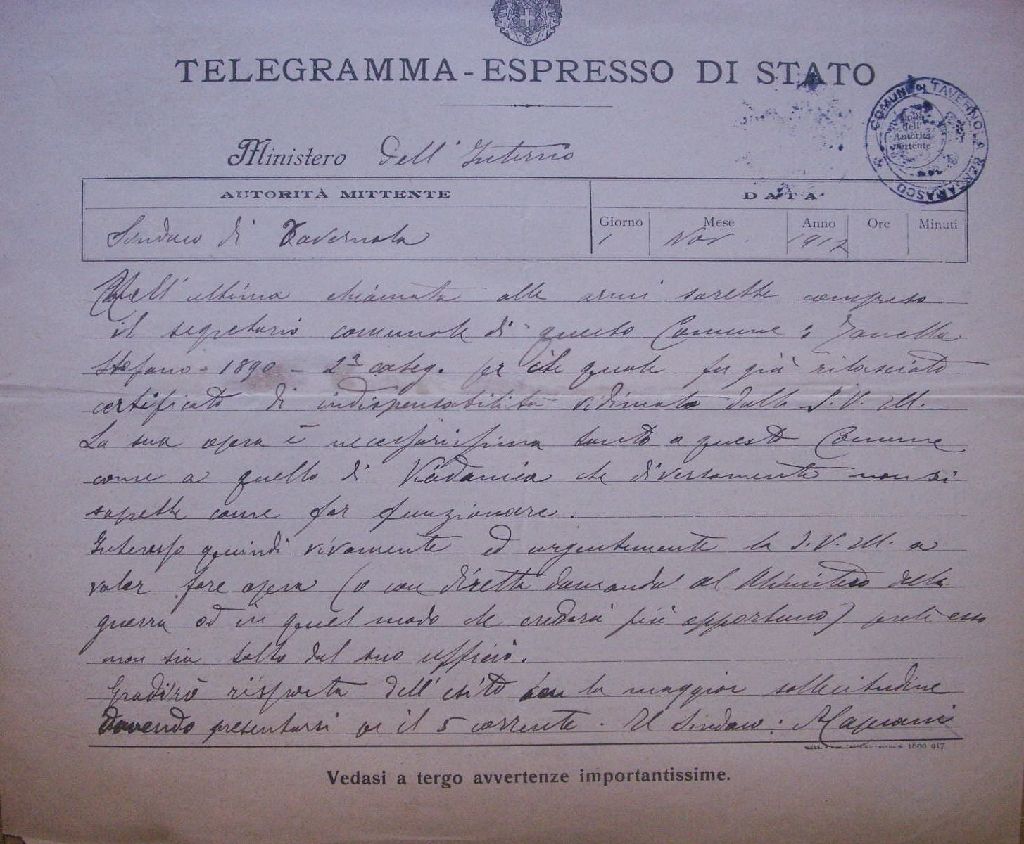 TELEGRAMMA-ESPRESSO DI STATO
COMUNE DI TAVERNO
Ministero dell'Interno
AUTORITÀ MITTENTE
DATA
Giorno Mese Anno Ore Minuti
Sindaco di Tavernola
1 Nov.
Nell'ultima chiamata alle armi sarebbe compreso
il segretario comunale di questo Comune: Zanella
Stefano - 1890 - 2ª categ. per il quale fu già rilasciato
certificato di indispensabilità vidimato dalla S.V.Ill.
La sua opera è necessarissima tanto a questo Comune
come a quello di Viadanica che diversamente non si
saprebbe come far funzionare.
Interesso quindi vivamente ed urgentemente la S.V.Ill. a
voler fare opera (o con diretta domanda al Ministero della
guerra od in quel modo che crederà più opportuno) perchè esso
non sia tolto dal suo ufficio.
Gradirò risposta dell'esito con la maggior sollecitudine
dovendo presentarsi il 5 corrente. Il Sindaco:
Vedasi a tergo avvertenze importantissime.